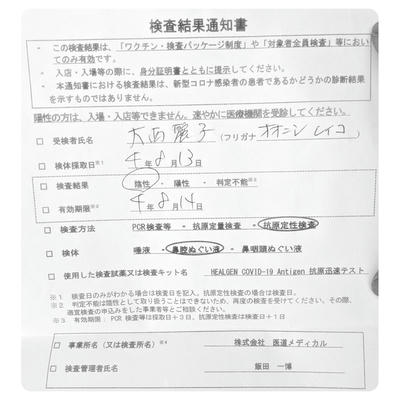 検査結果通知書
- この検査結果は、「ワクチン・検査パッケージ制度」や「対象者全員検査」等においてのみ有効です。
- 入店・入場等の際に、身分証明書とともに提示してください。
- 本通知書における検査結果は、新型コロナ感染者の患者であるかどうかの診断結果を示すものではありません。
陽性の方は、入場・入店等できません。速やかに医療機関を受診してください。
□ 受検者氏名 大西麗子 (フリガナ オオニシ レイコ)
□ 検体採取日※1 4年8月13日
□ 検査結果 陰性 ・ 陽性 ・ 判定不能※2
□ 有効期限※3 4年8月14日
□ 検査方法 PCR検査等 ・ 抗原定量検査 ・ 抗原定性検査
□ 検体 唾液 ・ 鼻腔ぬぐい液 ・ 鼻咽頭ぬぐい液
□ 使用した検査試薬又は検査キット名 HEALGEN COVID-19 Antigen 抗原迅速テスト
※1 検査日のみがわかる場合は検査日を記入。抗原定性検査の場合は検査日。
※2 判定不能は陰性として取り扱うことはできないため、再度の検査を受けてください。その際、適宜検査の申込みをした事業者等とご相談ください。
※3 有効期限:PCR検査等は採取日+3日、抗原定性検査は検査日+1日
□ 事業所名(又は検査所名)※4 株式会社 医道メディカル
□ 検査管理者氏名 飯田 一博